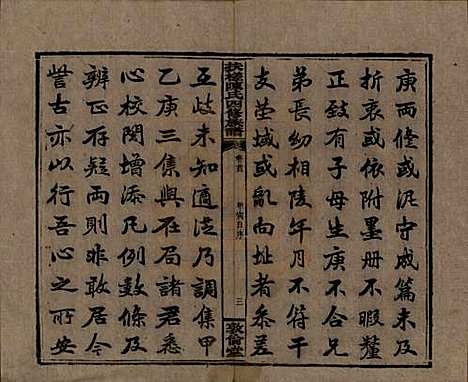 庚兩修或泥守成篇未及
折衷或依附墨冊不暇釐
正致有子母生庚不合兄
弟長幼相陵年月不符干
支塋域或亂向址者參差
扶槎陳氏四修族譜
卷首
三
敦倫堂
互歧未知適從乃調集甲
乙庚三集與在局諸君悉
心校閱增添凡例數條及
辨正存疑兩則非敢居今
訾古亦以行吾心之所安